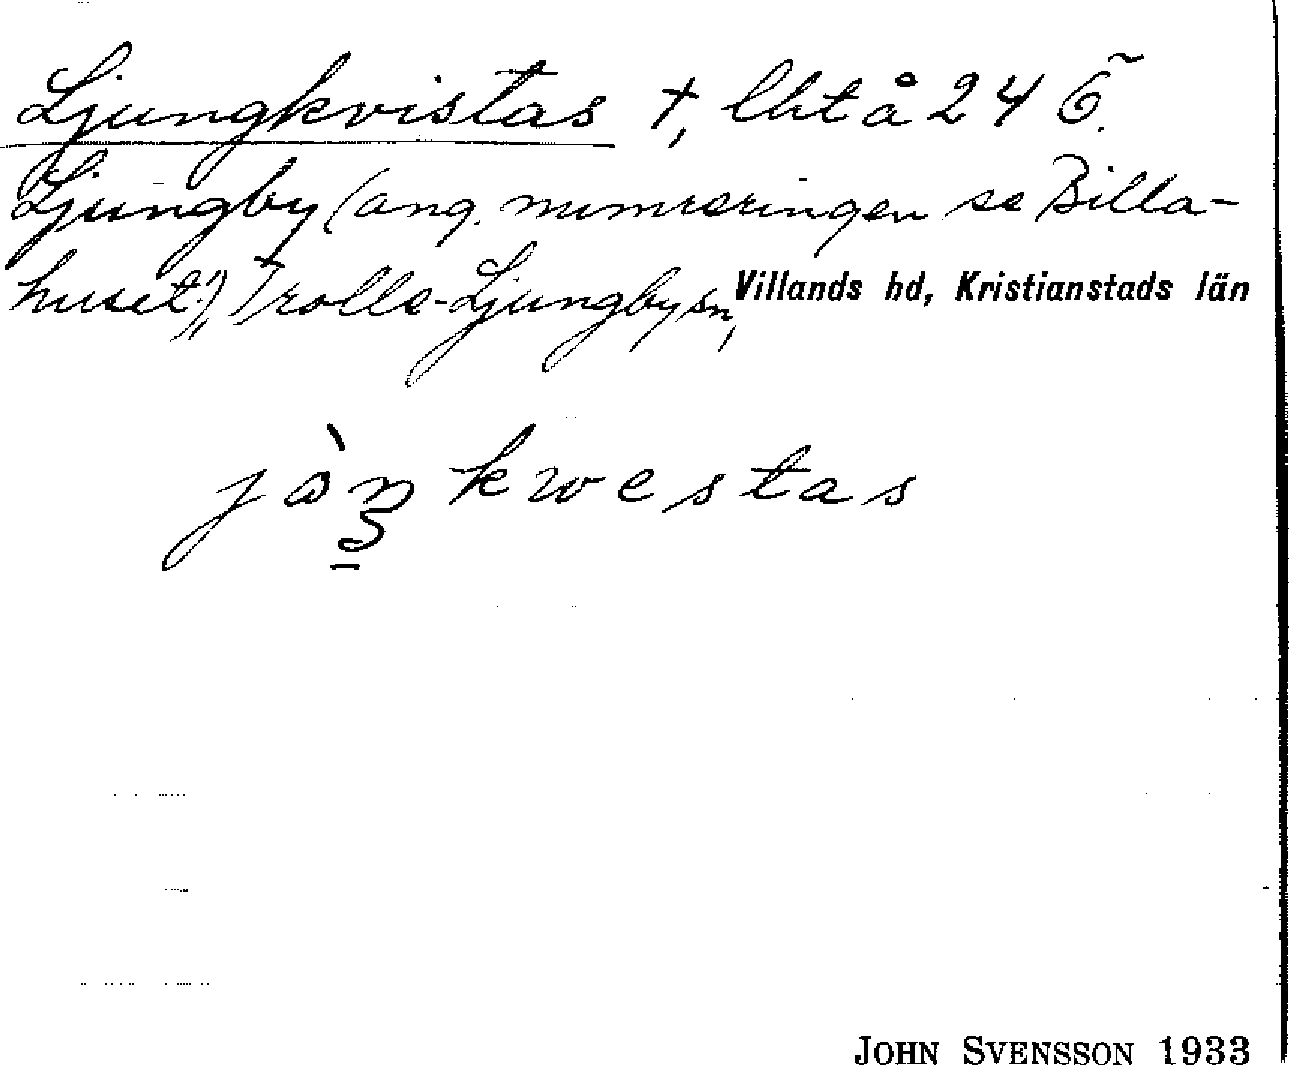 Ljungkvistas †, lht å 24 6̃.
Ljungby (ang. numreringen se Billa-
huset.), Trolle-Ljungby sn, Villands hd, Kristianstads län
jòŋkwestas
JOHN SVENSSON 1933